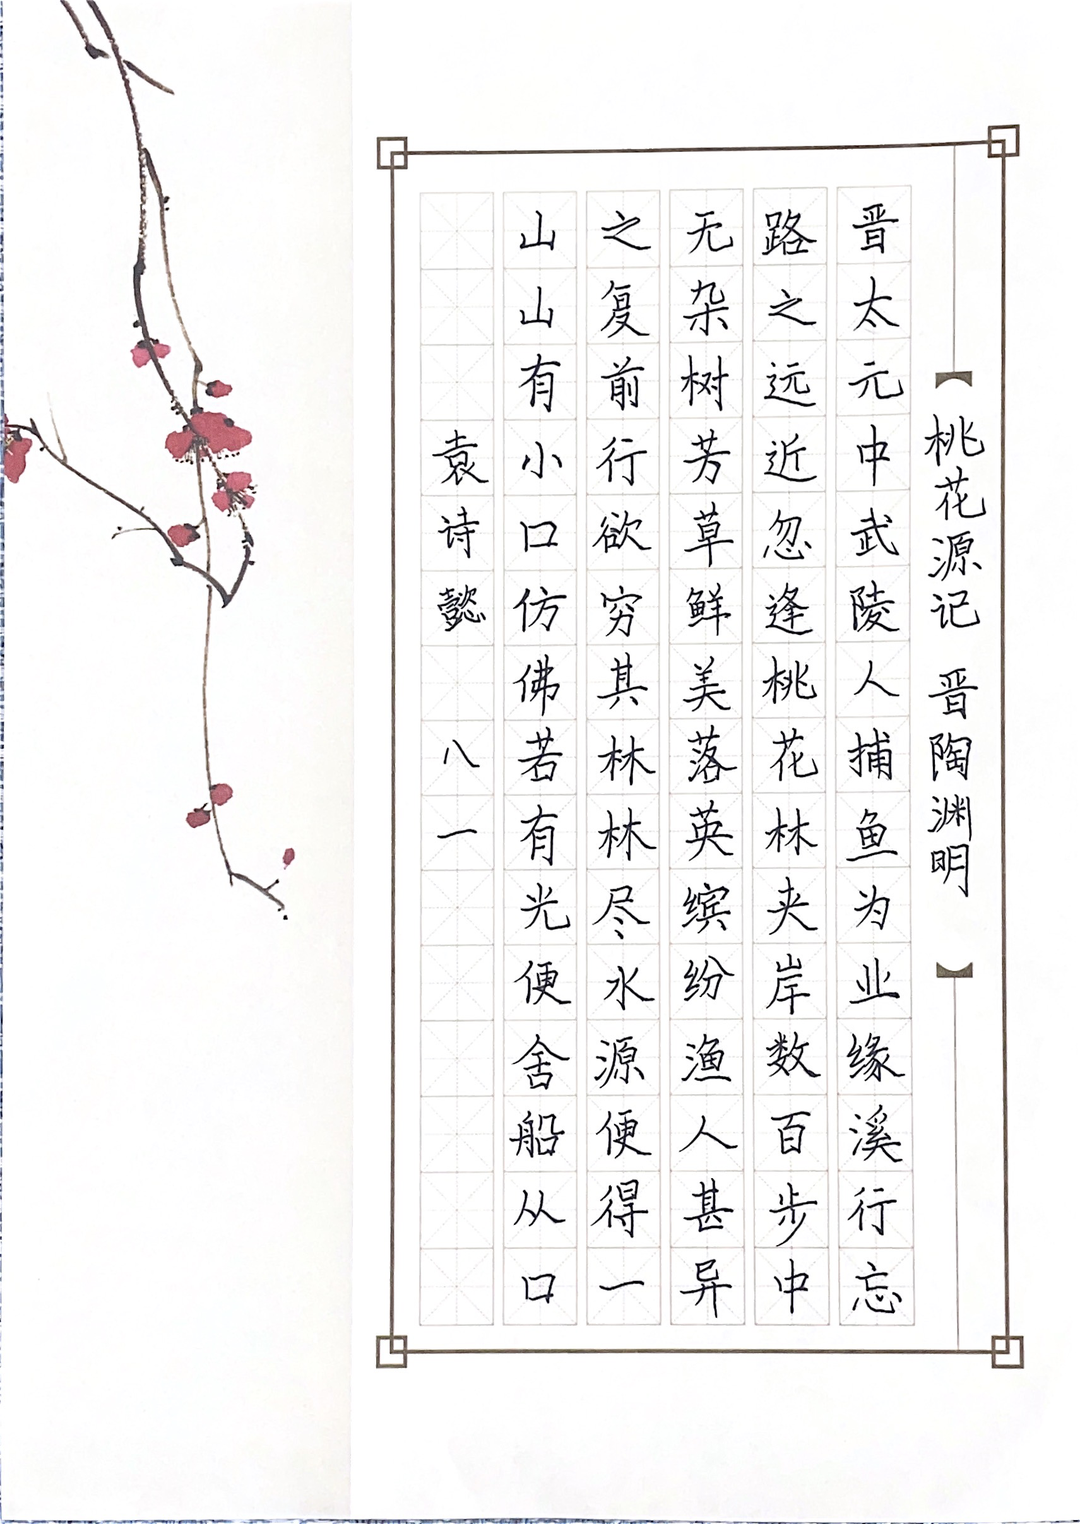 桃花源记 晋 陶渊明
晋太元中武陵人捕鱼为业缘溪行忘
路之远近忽逢桃花林夹岸数百步中
无杂树芳草鲜美落英缤纷渔人甚异
之复前行欲穷其林林尽水源便得一
山山有小口仿佛若有光便舍船从口
袁诗懿 八一